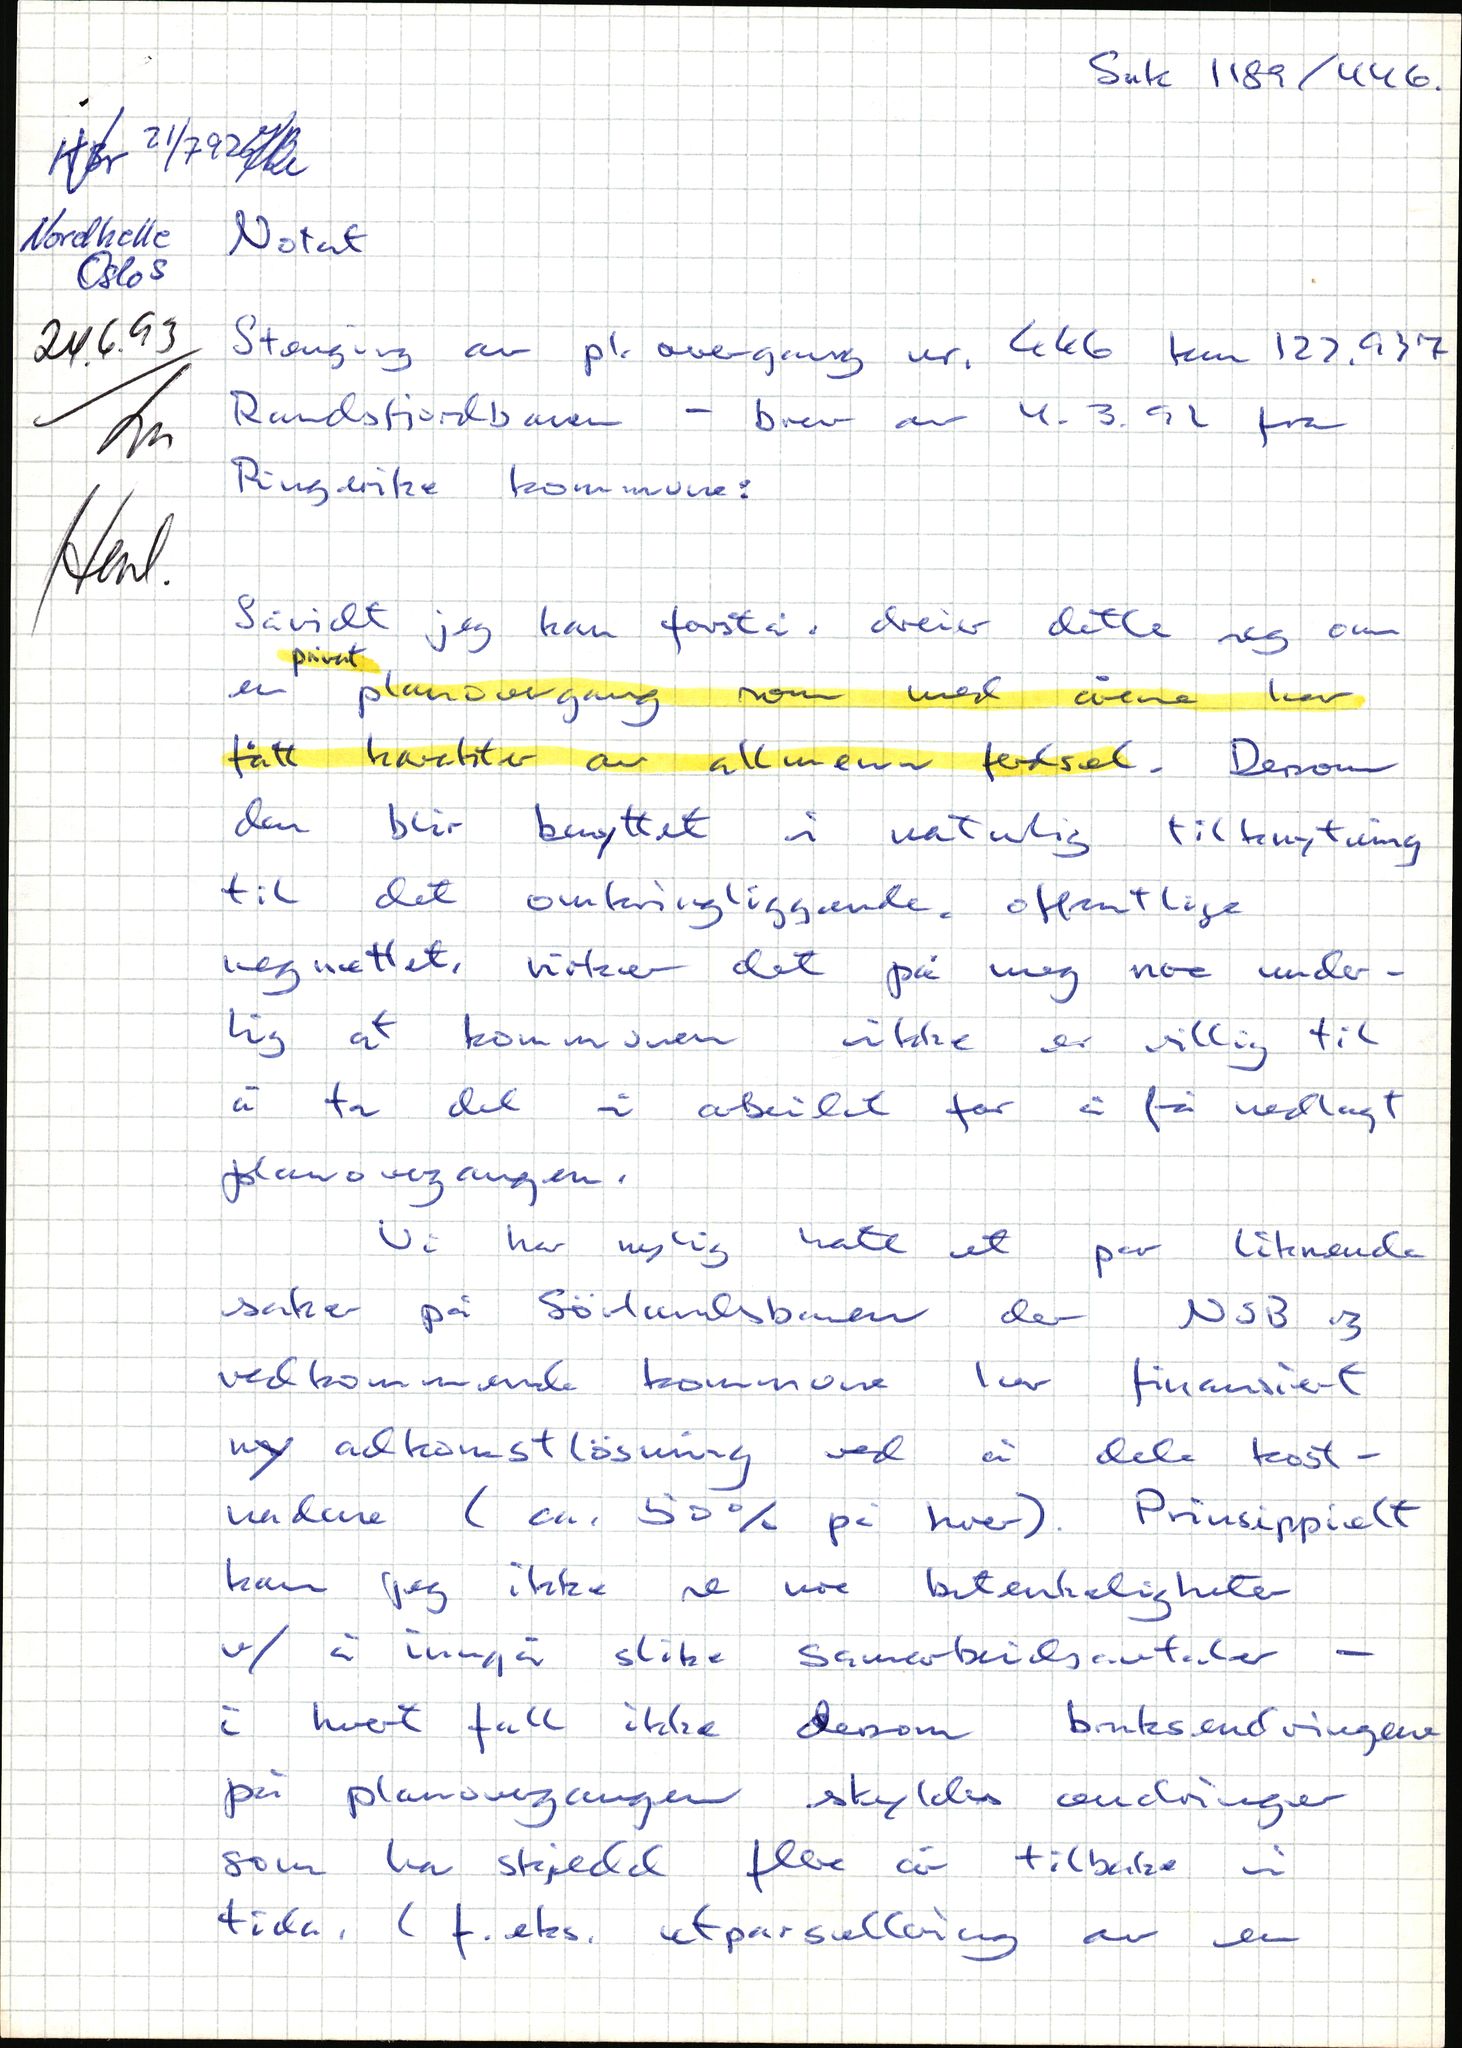 Sak 1189/446.
Hbr 21/7 92
Nordhelle
Oslo S
Notat
24.6.93
Stenging av pl.overgang nr. 446 km 122.937
Randsfjordbanen – brev av 4.3.92 fra
Ringerike kommune:
Henl.
Såvidt jeg kan forstå, dreier dette seg om
privat
en planovergang som med årene har
fått karakter av allmenn ferdsel. Dersom
den blir benyttet i naturlig tilknytning
til det omkringliggende, offentlige
vegnettet, virker det på meg noe under-
lig at kommunen ikke er villig til
å ta del i arbeidet for å få nedlagt
planovergangen.
Vi har nylig hatt et par liknende
saker på Sörlandsbanen der NSB og
vedkommende kommune har finansiert
ny adkomstlösning ved å dele kost-
nadene (ca. 50% på hver). Prinsippielt
kan jeg ikke se noe betenkeligheter
v/ å inngå slike samarbeidsavtaler –
i hvert fall ikke dersom bruksendringene
på planovergangen skyldes endringer
som har skjedd flere år tilbake i
tida. (f.eks. utparsellering av en